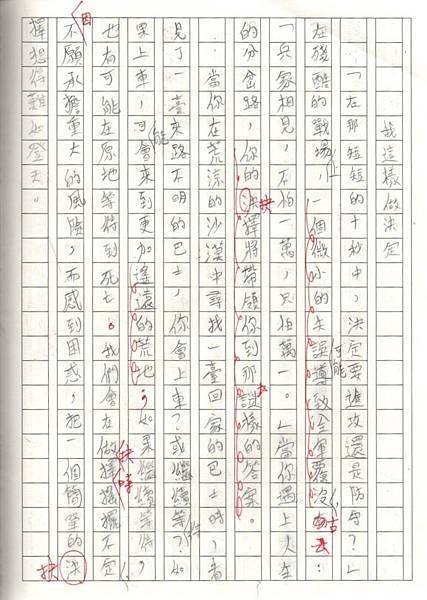 我這樣做決定
「在那短短的十秒中，決定要進攻還是防守？」
在殘酷的戰場上，一個微小的失誤可能導致全軍覆沒
「兵家相見，不怕一萬，只怕萬一。」當你遇上人生
的分岔路，你的決擇將帶領你到那謎樣的答案。
當你在荒涼的沙漠中尋找一臺回家的巴士時，看
見了一臺來路不明的巴士，你會上車？或繼續等？如
果上車，可能會來到更加遙遠的荒地；如果繼續等待，
也有可能在原地等待到死亡。我們會在做抉擇時擺不定，
因不願承擔重大的風險，而感到困惑，把一個簡單的決
擇想得難如登天。